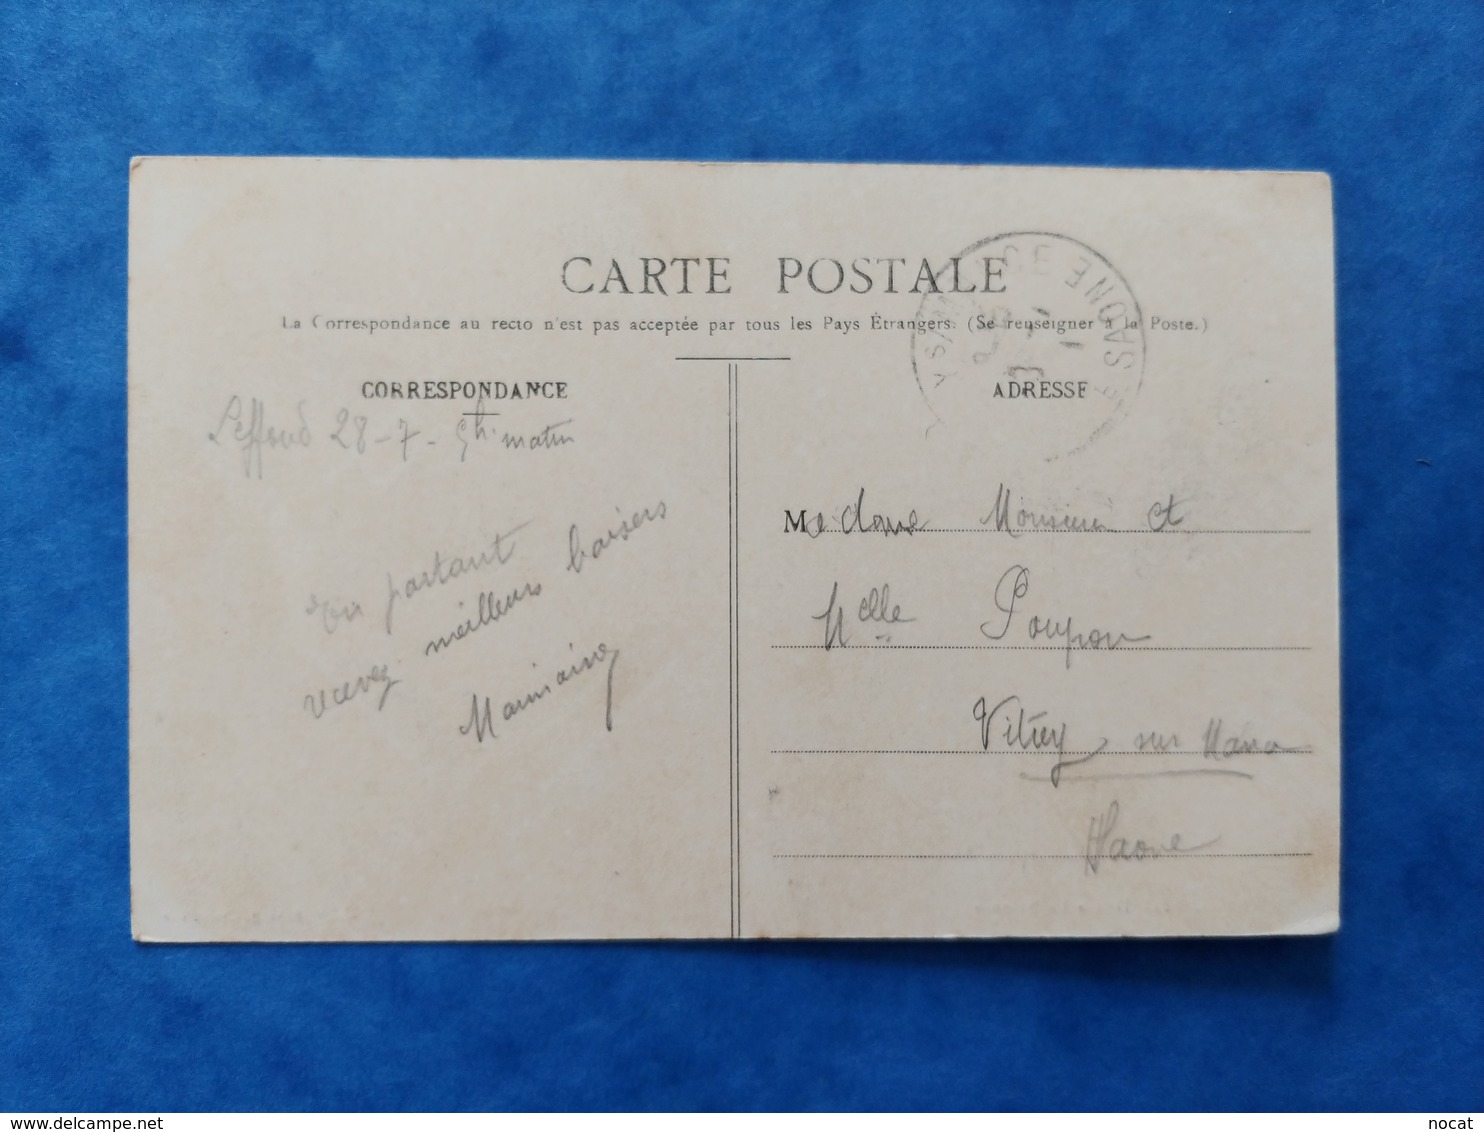 CARTE POSTALE
La Correspondance au recto n'est pas acceptée par tous les Pays Étrangers. (Se renseigner à la Poste.)
CORRESPONDANCE
Leffond 28-7- 5h. matin
En partant
recevez meilleurs baisers
ADRESSE
Madame Monsieur et
Melle Poupon
Vitrey sur Mance
Hte Saone
SAONE
nocat